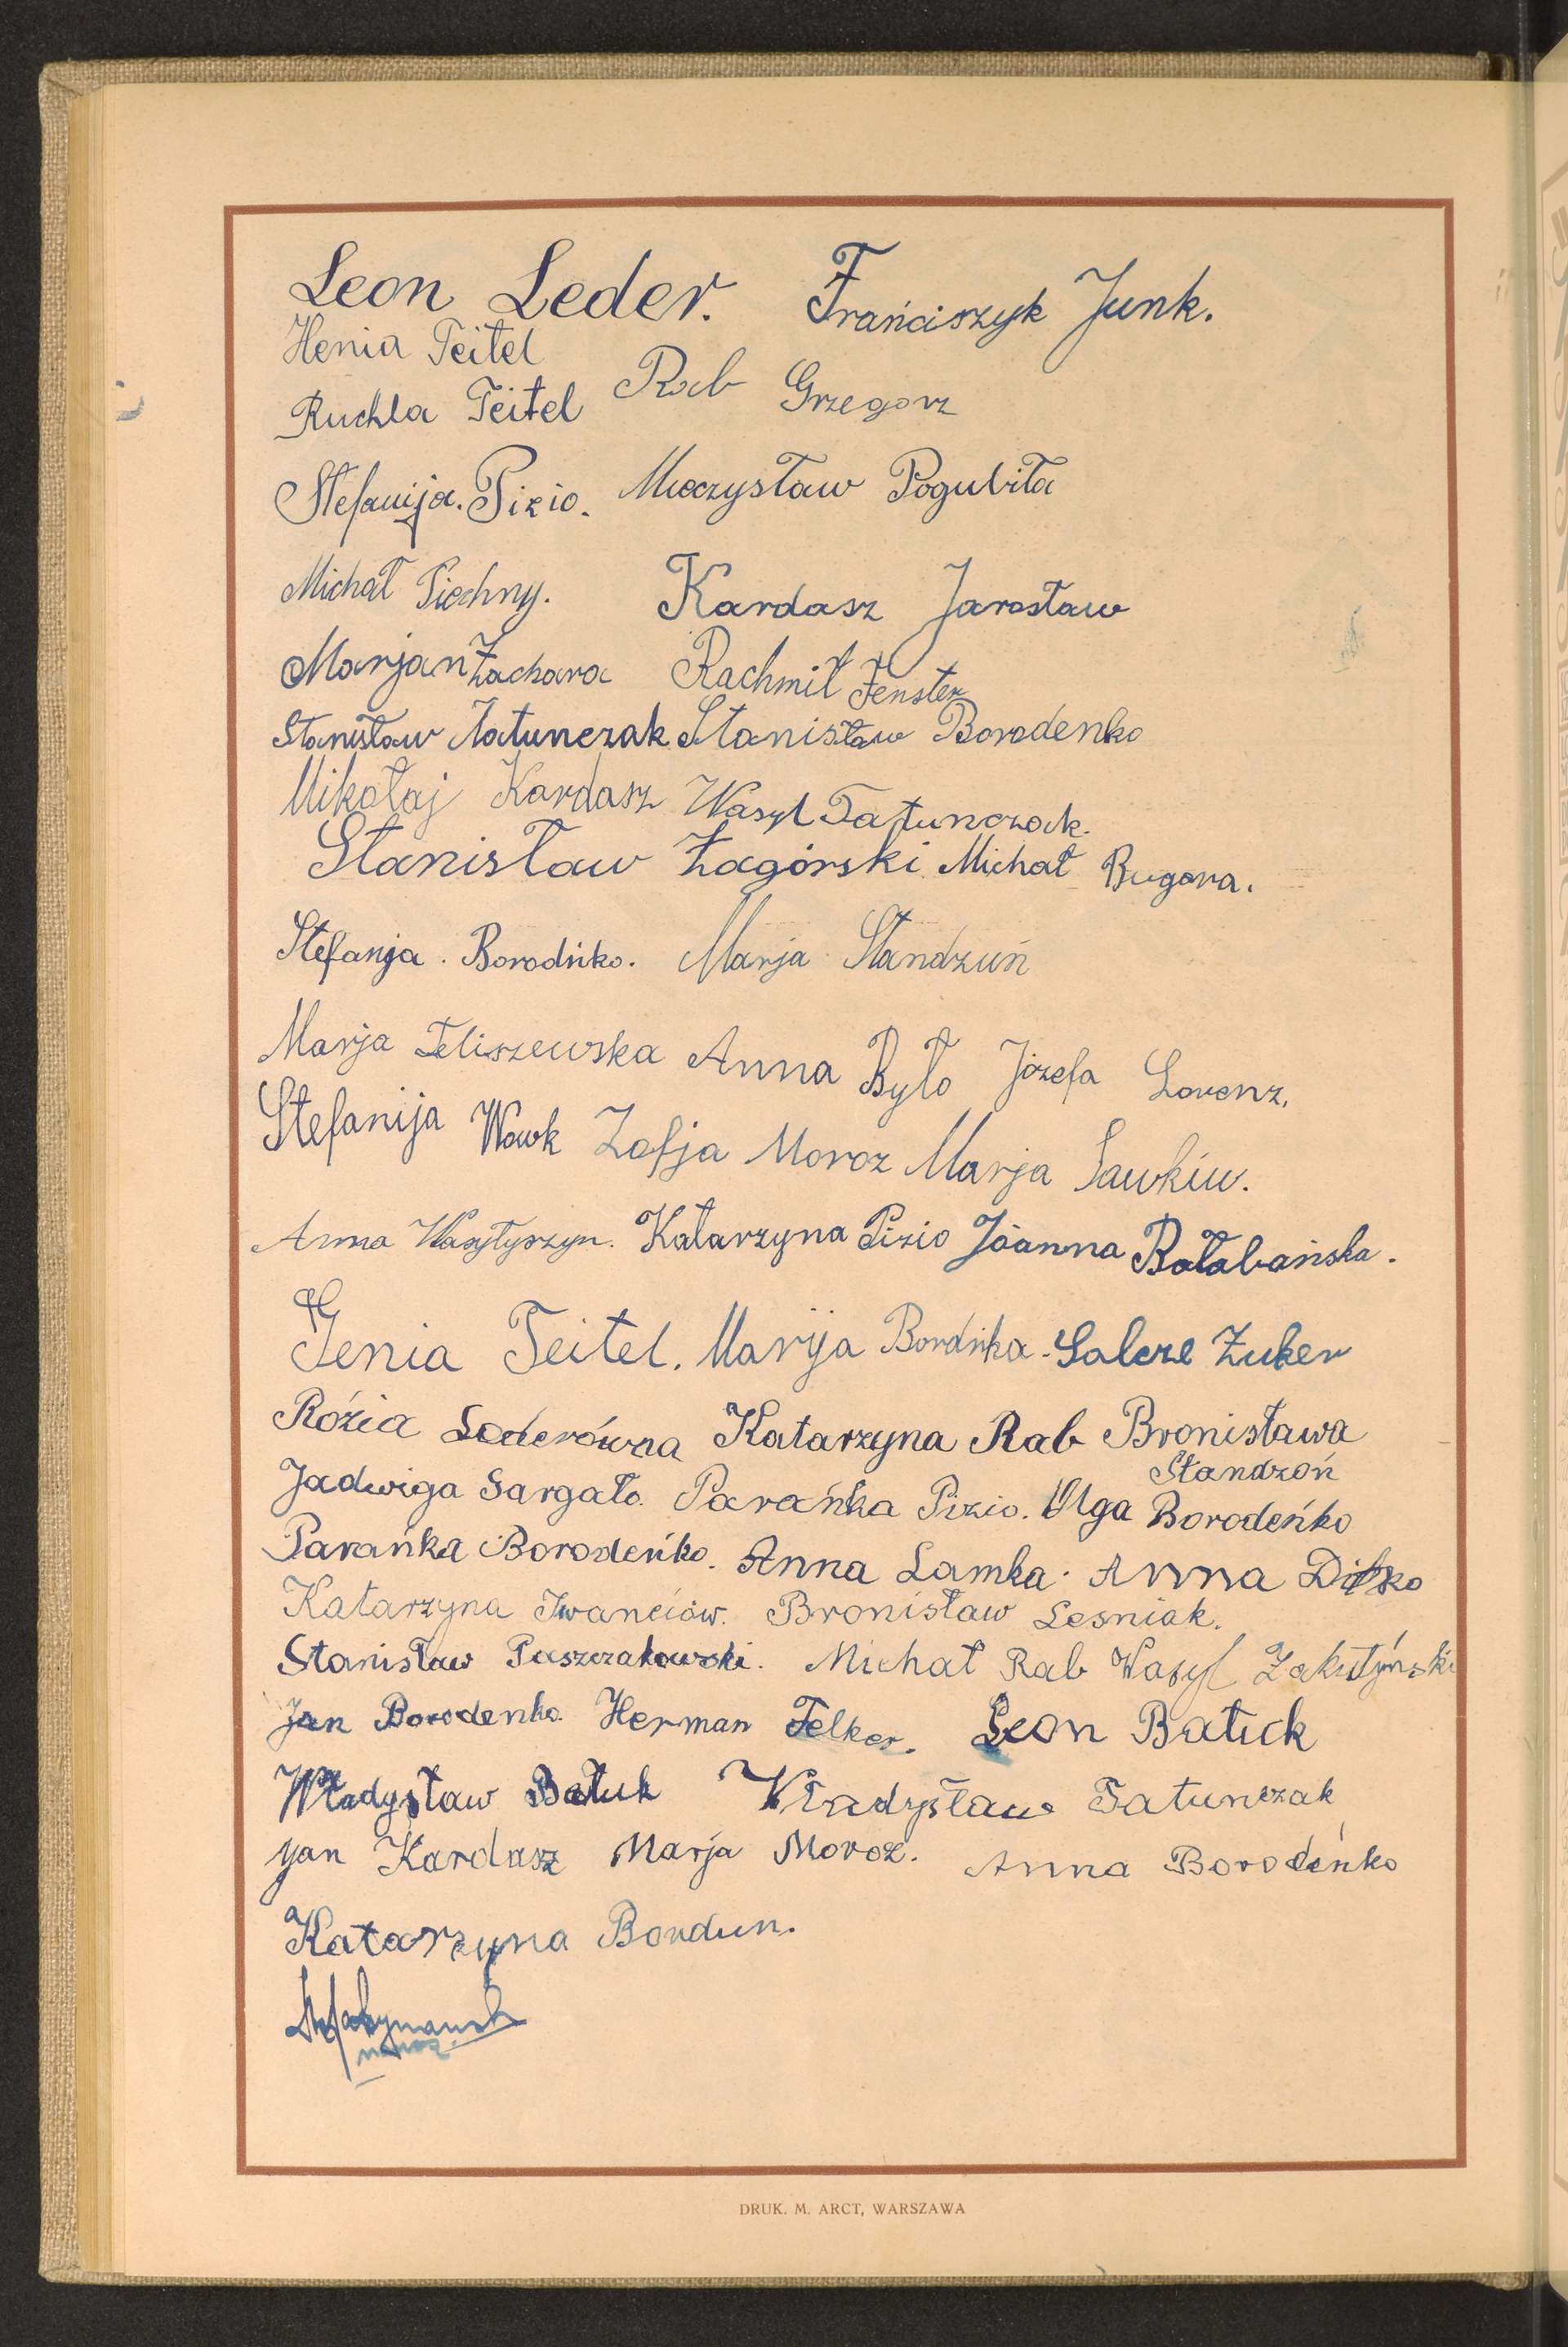 Leon Leder. Frańciszyk Junk.
Henia Teitel
Ruchla Teitel Rab Grzegorz
Stefanija. Pizio. Mieczysław Pogubiła
Michał Piechny. Kardasz Jarosław
Marjan Zachara Rachmil Fenster
Stanisław Tatunczak Stanisław Borodenko
Mikołaj Kardasz Wasyl Tatunczak.
Stanisław Zagórski Michał Bugera.
Stefanja. Borodńko. Marja Standzuń
Marja Teliszewska Anna Było Józefa Lorenz,
Stefanija Wowk Zofja Moroz Marja Sawkiw.
Anna Wasyłyszyn. Katarzyna Pizio Jóanna Bałabańska.
Genia Teitel. Marija Bordńka. Salcze Zuker
Rózia Lederówna Katarzyna Rab Bronisława
Standzoń
Jadwiga Sargało. Parańka Pizio. Olga Borodeńko
Parańka Borodeńko. Anna Lamka. Anna Ditko
Katarzyna Iwanciów. Bronisław Lesniak.
Stanisław Puszczakowski. Michał Rab Wasyl Zakutyński
Jan Borodenko. Herman Felker. Leon Batuck
Władysław Batuk Władysław Tatunczak
Yan Kardasz Marja Moroz. Anna Borodeńko
Katarzyna Bordun.
DRUK. M. ARCT, WARSZAWA